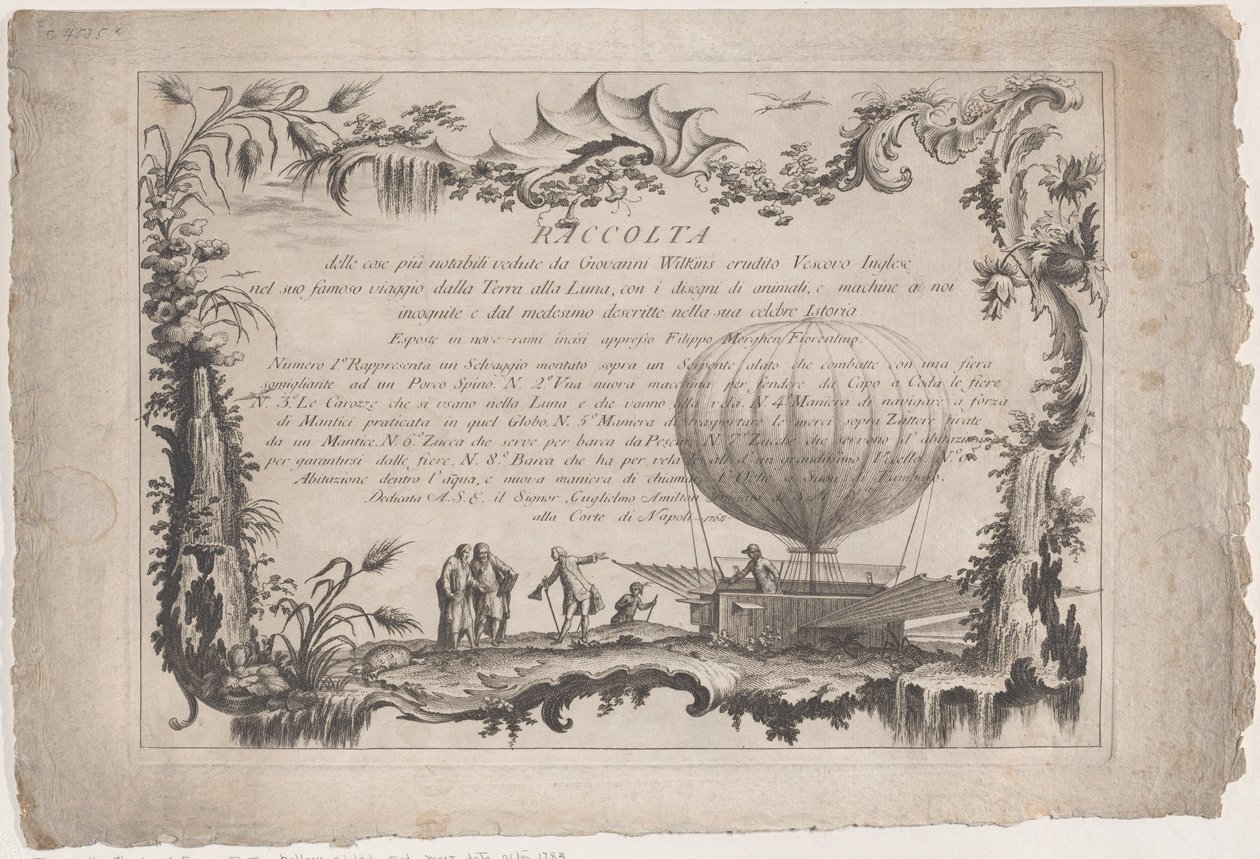 c 4535
RACCOLTA
delle cose più notabili vedute da Giovanni Wilkins erudito Vescovo Inglese
nel suo famoso viaggio dalla Terra alla Luna, con i disegni di animali, e machine a noi
incognite e dal medesimo descritte nella sua celebre Istoria.
Esposte in nove rami incisi appresso Filippo Morghen Fiorentino.
Numero 1.º Rappresenta un Selvaggio montato sopra un Serpente alato che combatte con una fiera
somigliante ad un Porco Spino. N. 2.º Vna nuova macchina per fendere da Capo a Coda le fiere
N. 3.º Le Carozze che si usano nella Luna e che vanno alla vela. N. 4.º Maniera di navigare a forza
di Mantici praticata in quel Globo. N. 5.º Maniera di trasportare le merci sopra Zattare tirate
da un Mantice. N. 6.º Zucca che serve per barca da Pescare. N. 7.º Zucche che servono d'abitazione
per garantirsi dalle fiere. N. 8.º Barca che ha per vela le ali d'un grandissimo Vccello. N.º 9.º
Abitazione dentro l'aqua, e nuova maniera di
Dedicata A. S. E. il Signor Guglielmo Amilton
alla Corte di Napoli 1764